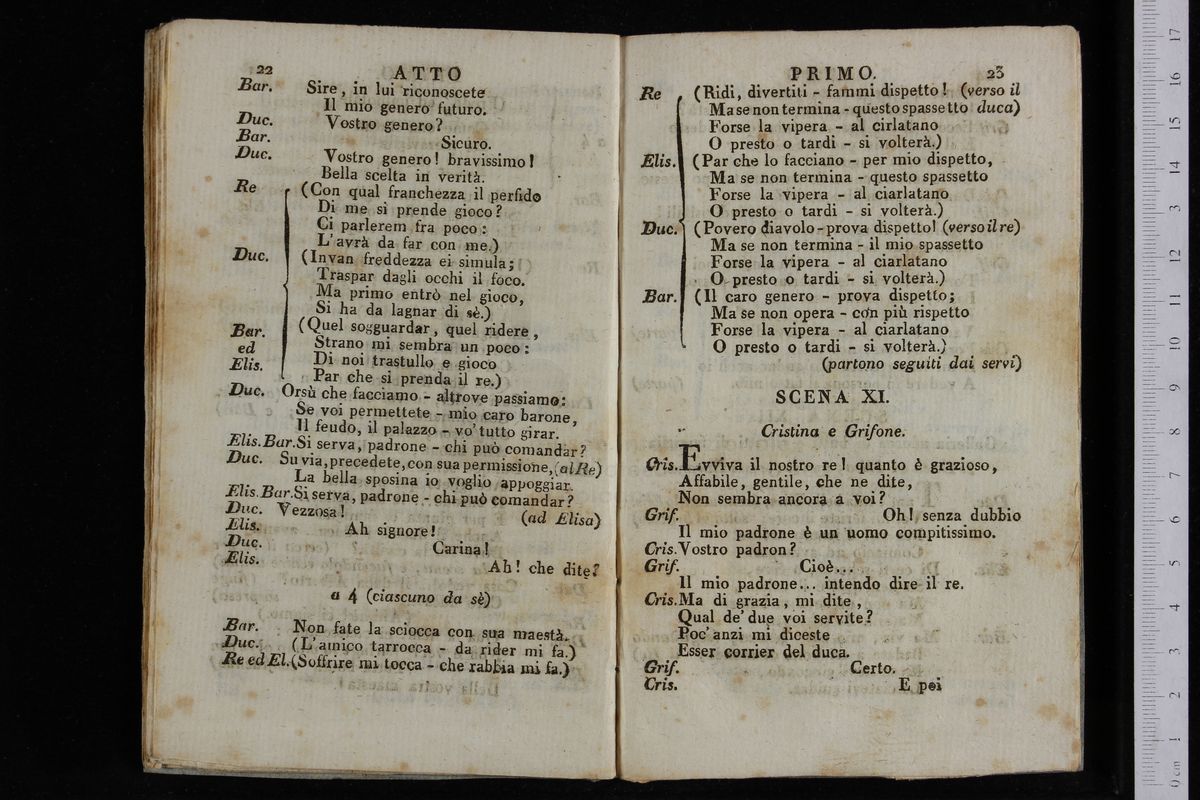 22 ATTO
Bar. Sire, in lui riconoscete
Il mio genero futuro.
Duc. Vostro genero?
Bar. Sicuro.
Duc. Vostro genero! bravissimo!
Bella scelta in verità.
Re (Con qual franchezza il perfido
Di me si prende gioco?
Ci parlerem fra poco:
L'avrà da far con me.)
Duc. (Invan freddezza ei simula;
Traspar dagli occhi il foco.
Ma primo entrò nel gioco,
Si ha da lagnar di sè.)
Bar. (Quel sogguardar, quel ridere,
ed Strano mi sembra un poco:
Elis. Di noi trastullo e gioco
Par che si prenda il re.)
Duc. Orsù che facciamo - altrove passiamo:
Se voi permettete - mio caro barone,
Il feudo, il palazzo - vo' tutto girar.
Elis. Bar. Si serva, padrone - chi può comandar?
Duc. Su via, precedete, con sua permissione, (al Re)
La bella sposina io voglio appoggiar.
Elis. Bar. Si serva, padrone - chi può comandar?
Duc. Vezzosa! (ad Elisa)
Elis. Ah signore!
Duc. Carina!
Elis. Ah! che dite?
a 4 (ciascuno da sè)
Bar. Non fate la sciocca con sua maestà.
Duc. (L'amico tarrocca - da rider mi fa.)
Re ed El. (Soffrire mi tocca - che rabbia mi fa.)
PRIMO. 23
Re (Ridi, divertiti - fammi dispetto! (verso il
Ma se non termina - questo spassetto duca)
Forse la vipera - al cirlatano
O presto o tardi - si volterà.)
Elis. (Par che lo facciano - per mio dispetto,
Ma se non termina - questo spassetto
Forse la vipera - al ciarlatano
O presto o tardi - si volterà.)
Duc. (Povero diavolo - prova dispetto! (verso il re)
Ma se non termina - il mio spassetto
Forse la vipera - al ciarlatano
O presto o tardi - si volterà.)
Bar. (Il caro genero - prova dispetto;
Ma se non opera - con più rispetto
Forse la vipera - al ciarlatano
O presto o tardi - si volterà.)
(partono seguiti dai servi)
SCENA XI.
Cristina e Grifone.
Cris. Evviva il nostro re! quanto è grazioso,
Affabile, gentile, che ne dite,
Non sembra ancora a voi?
Grif. Oh! senza dubbio
Il mio padrone è un uomo compitissimo.
Cris. Vostro padron?
Grif. Cioè...
Il mio padrone... intendo dire il re.
Cris. Ma di grazia, mi dite,
Qual de' due voi servite?
Poc'anzi mi diceste
Esser corrier del duca.
Grif. Certo.
Cris. E poi
0 cm 1 2 3 4 5 6 7 8 9 10 11 12 13 14 15 16 17